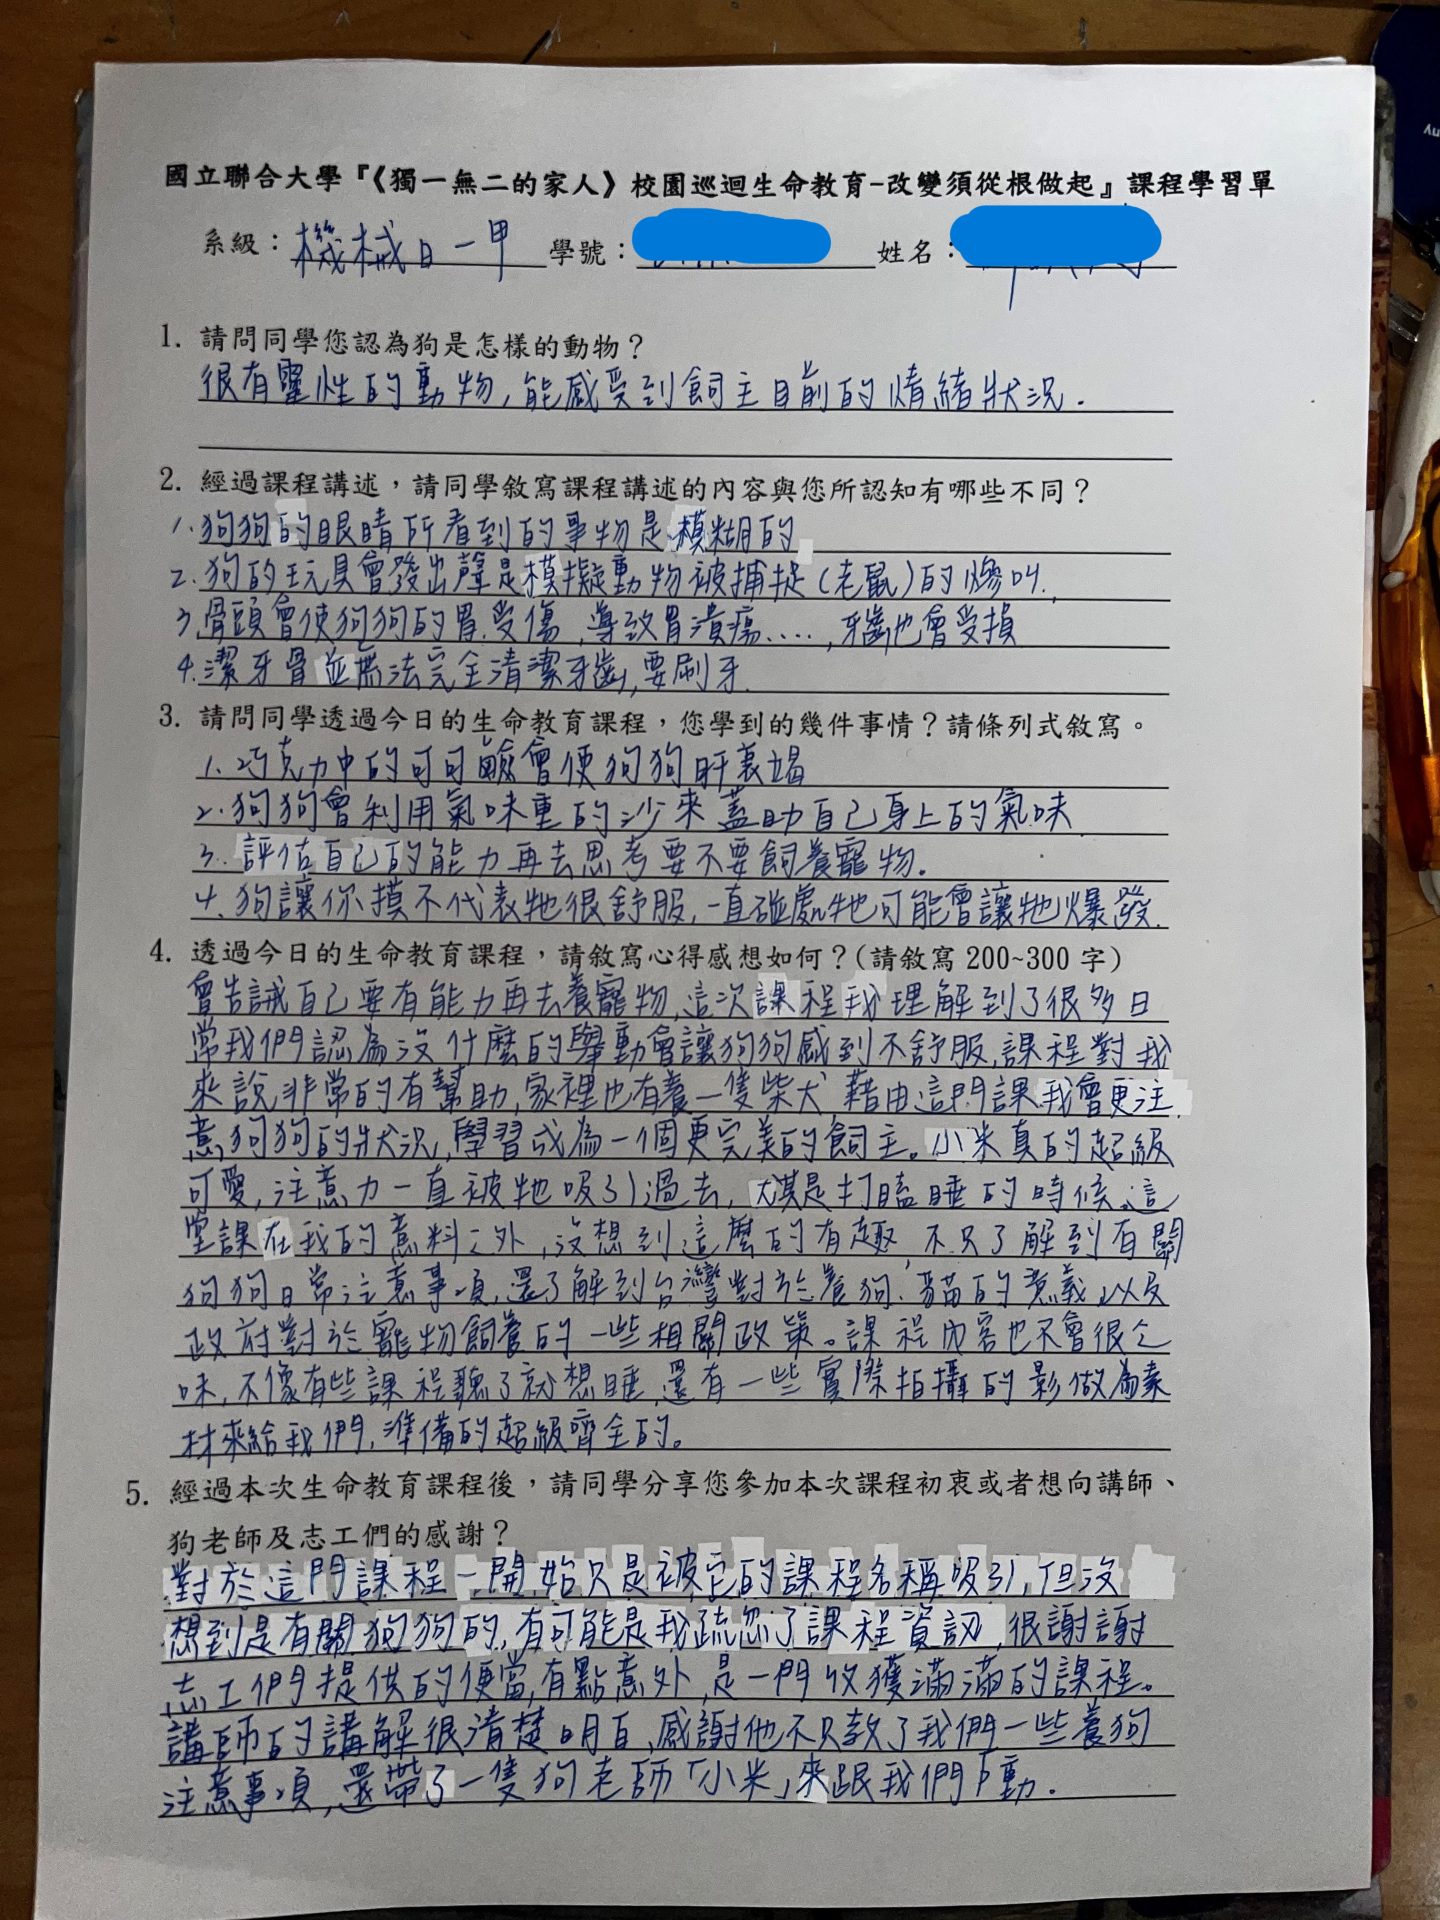 國立聯合大學『《獨一無二的家人》校園巡迴生命教育-改變須從根做起』課程學習單
系級：機械日一甲 學號： 姓名：
1. 請問同學您認為狗是怎樣的動物？
很有靈性的動物，能感受到飼主目前的情緒狀況.
2. 經過課程講述，請同學敘寫課程講述的內容與您所認知有哪些不同？
1. 狗狗的眼睛所看到的事物是模糊的
2. 狗的玩具會發出聲是模擬動物被捕捉(老鼠)的慘叫.
3. 骨頭會使狗狗的胃受傷，導致胃潰瘍.....，牙齒也會受損
4. 潔牙骨並無法完全清潔牙齒，要刷牙.
3. 請問同學透過今日的生命教育課程，您學到的幾件事情？請條列式敘寫。
1. 巧克力中的可可鹼會使狗狗肝衰竭
2. 狗狗會利用氣味重的沙來蓋助自己身上的氣味
3. 評估自己的能力再去思考要不要飼養寵物.
4. 狗讓你摸不代表牠很舒服，一直碰處牠可能會讓牠爆發.
4. 透過今日的生命教育課程，請敘寫心得感想如何？(請敘寫 200~300 字)
會告誡自己要有能力再去養寵物，這次課程我理解到了很多日
常我們認為沒什麼的舉動會讓狗狗感到不舒服，課程對我
來說非常的有幫助，家裡也有養一隻柴犬 藉由這門課我會更注
意狗狗的狀況，學習成為一個更完美的飼主。小米真的超級
可愛，注意力一直被牠吸引過去，尤其是打瞌睡的時候.這
堂課在我的意料之外，沒想到這麼的有趣，不只了解到有關
狗狗日常注意事項，還了解到台灣對於養狗、貓的意義以及
政府對於寵物飼養的一些相關政策。課程內容也不會很乏
味，不像有些課程聽了就想睡，還有一些實際拍攝的影做為素
材來給我們，準備的超級齊全的。
5. 經過本次生命教育課程後，請同學分享您參加本次課程初衷或者想向講師、
狗老師及志工們的感謝？
對於這門課程一開始只是被它的課程名稱吸引，但沒
想到是有關狗狗的，有可能是我疏忽了課程資訊，很謝謝
志工們提供的便當，有點意外，是一門收獲滿滿的課程。
講師的講解很清楚明白，感謝他不只教了我們一些養狗
注意事項，還帶了一隻狗老師「小米」來跟我們互動.